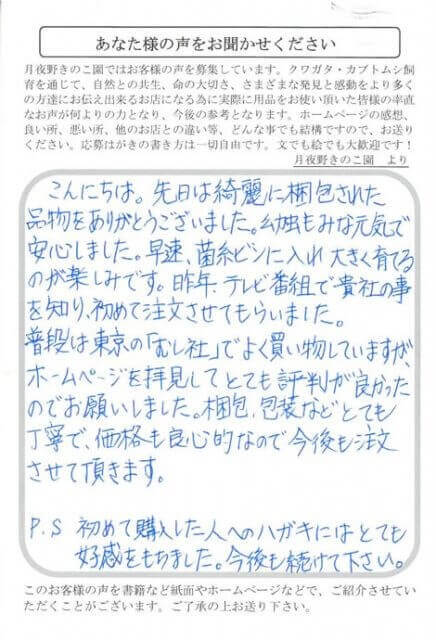 あなた様の声をお聞かせください
月夜野きのこ園ではお客様の声を募集しています。クワガタ・カブトムシ飼
育を通じて、自然との共生、命の大切さ、さまざまな発見と感動をより多く
の方達にお伝え出来るお店になる為に実際に用品をお使い頂いた皆様の率直
なお声が何よりの力となり、今後の参考となります。ホームページの感想、
良い所、悪い所、他のお店との違い等、どんな事でも結構ですので、お送り
ください。応募はがきの書き方は一切自由です。文でも絵でも大歓迎です！
月夜野きのこ園 より
こんにちは。先日は綺麗に梱包された
品物をありがとうございました。幼虫もみな元気で
安心しました。早速、菌糸ビンに入れ大きく育てる
のが楽しみです。昨年、テレビ番組で貴社の事
を知り、初めて注文させてもらいました。
普段は東京の「むし社」でよく買い物していますが、
ホームページを拝見してとても評判が良かった
のでお願いしました。梱包、包装などとても
丁寧で、価格も良心的なので今後も注文
させて頂きます。
P.S 初めて購入した人へのハガキにはとても
好感をもちました。今後も続けて下さい。
このお客様の声を書籍など紙面やホームページなどで、ご紹介させてい
ただくことがございます。ご了承の上お送り下さい。